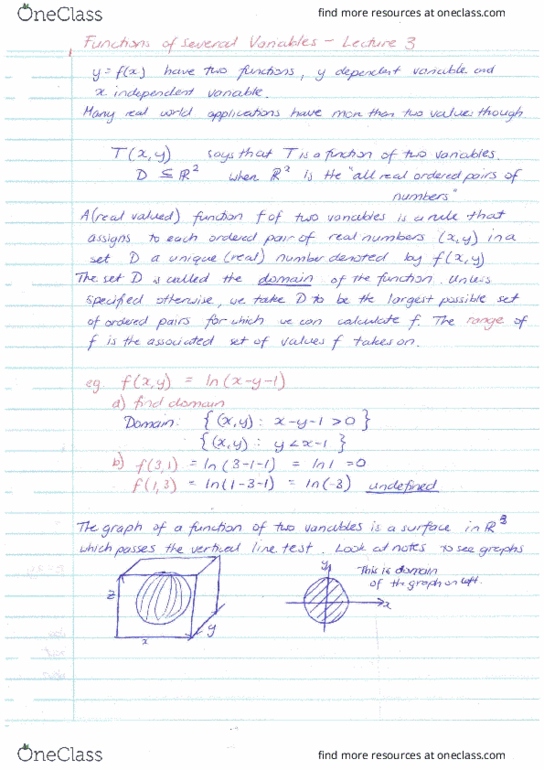 OneClass
find more resources at oneclass.com
Functions of Several Variables - Lecture 3
y=f(x) have two functions, y dependent variable and
x independent variable.
Many real world applications have more than two values though
T(x,y) says that T is a function of two variables.
D ⊆ ℝ² when ℝ² is the "all real ordered pairs of
numbers"
A (real valued) function f of two variables is a rule that
assigns to each ordered pair of real numbers (x,y) in a
set D a unique (real) number denoted by f(x,y)
The set D is called the domain of the function. Unless
specified otherwise, we take D to be the largest possible set
of ordered pairs for which we can calculate f. The range of
f is the associated set of values f takes on.
eg f(x,y) = ln(x-y-1)
a) find domain
Domain: {(x,y): x-y-1>0}
{(x,y): y<x-1}
b) f(3,1) = ln(3-1-1) = ln1 = 0
f(1,3) = ln(1-3-1) = ln(-3) undefined
The graph of a function of two variables is a surface in ℝ³
which passes the vertical line test. Look at notes to see graphs
z
x
y
y
x
This is domain
of the graph on left.
OneClass
find more resources at oneclass.com